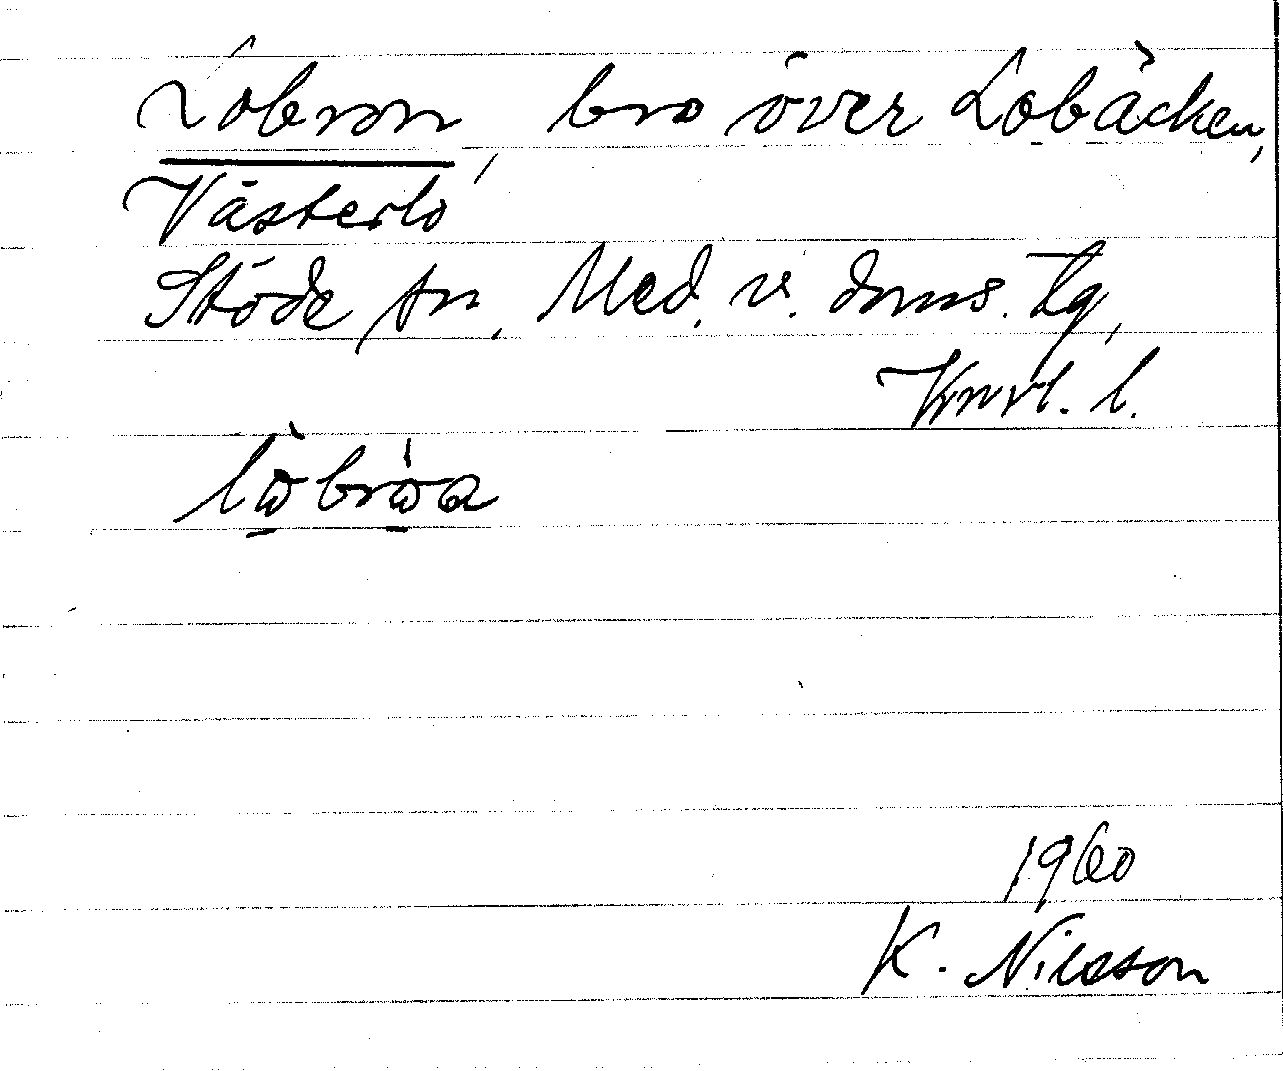 Lobron, bro över Lobäcken,
Västerlo
Stöde sn, Med. v. doms. tg,
Vnrl. l.
1960
K. Nilsson